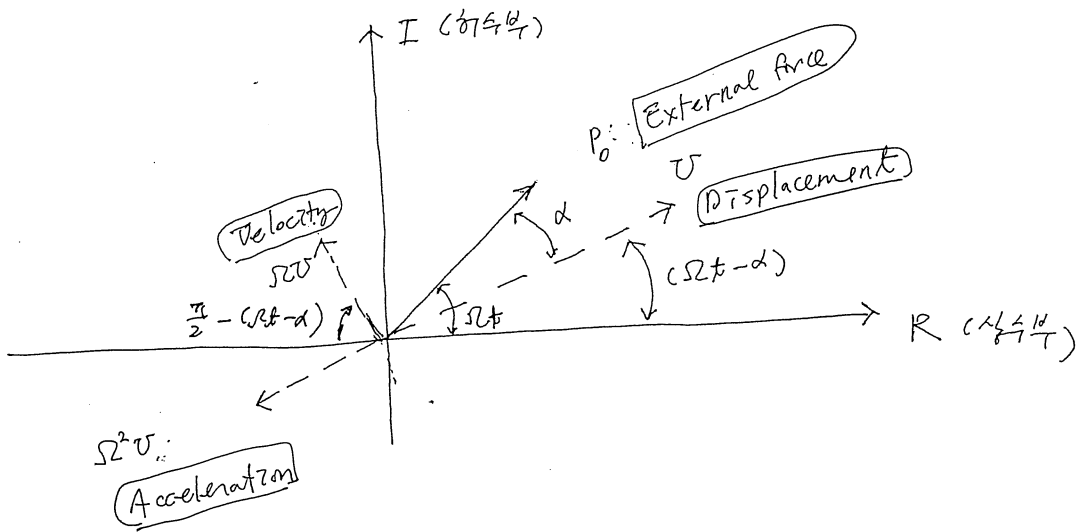 I (허수부)
P₀: External force
U
Displacement
Velocity
ΩU
α
(Ωt-α)
π/2 - (Ωt-α)
Ωt
R (실수부)
Ω²U:
Acceleration